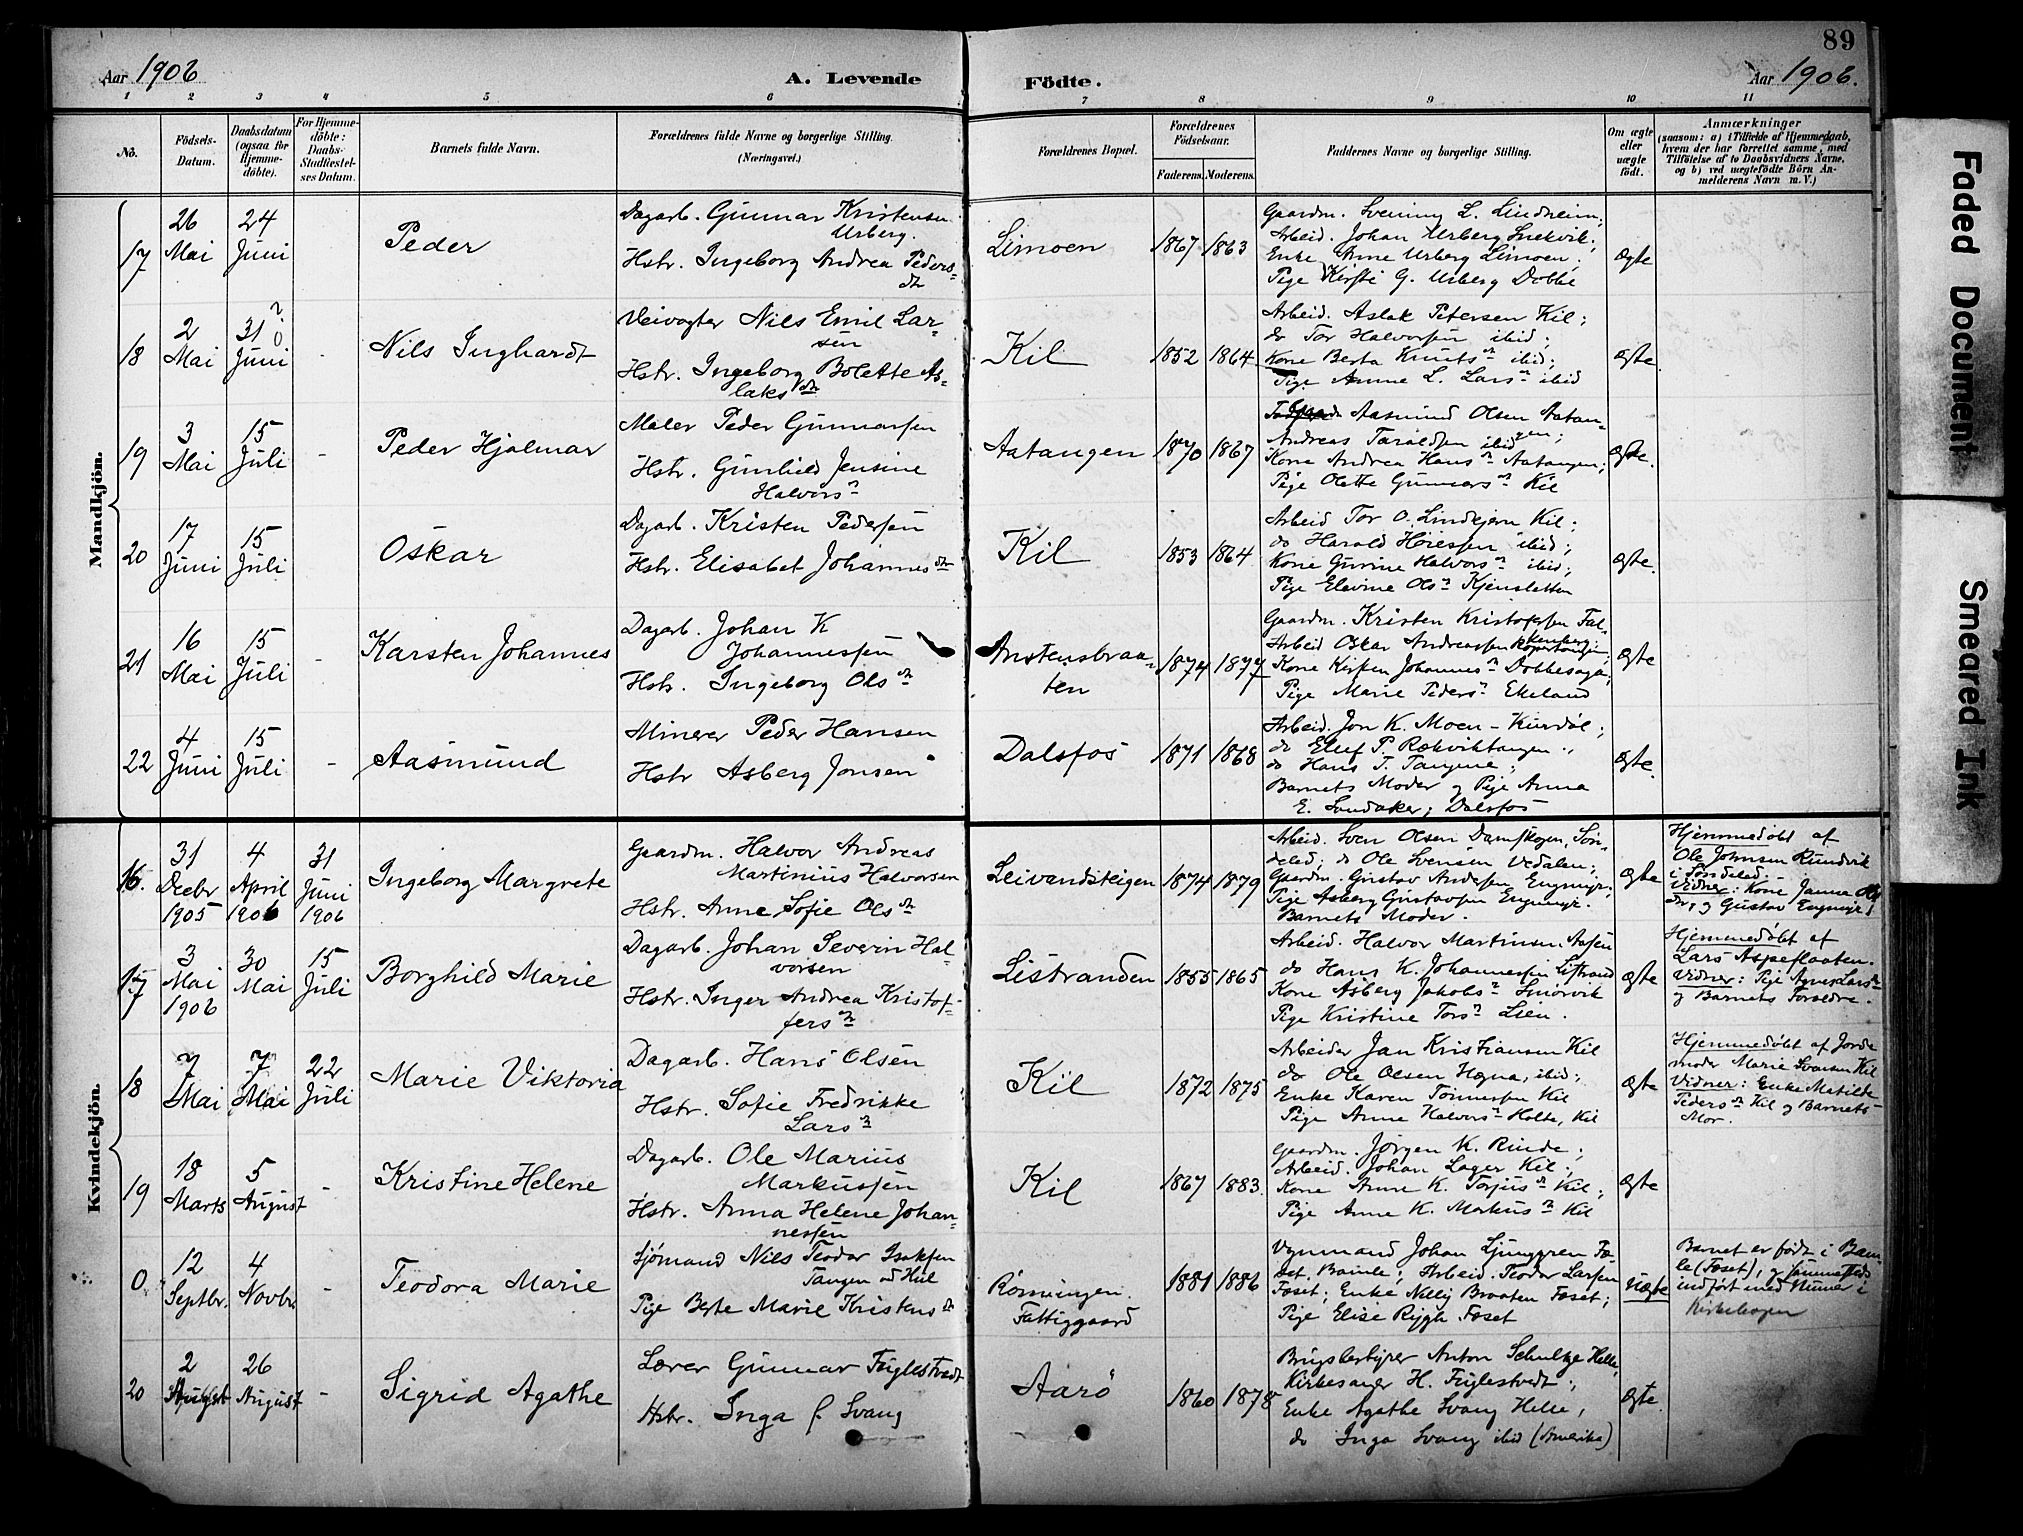 89
Aar 1906
A. Levende
Födte.
Aar 1906.
1 2 3 4 5 6 7 8 9 10 11
No.
Födsels-
Datum.
Daabsdatum
(ogsaa for
Hjemme-
döbte).
For Hjemme-
döbte:
Daabs-
Stadfæstel-
ses Datum.
Barnets fulde Navn.
Forældrenes fulde Navne og borgerlige Stilling.
(Næringsvei.)
Forældrenes Bopæl.
Forældrenes
Födselsaar.
Faderens. Moderens.
Faddernes Navne og borgerlige Stilling.
Om ægte
eller
uægte
födt.
Anmærkninger
(saasom: a) i Tilfælde af Hjemmedaab,
hvem der har forrettet samme, med
Tilföielse af to Daabsvidners Navne,
og b) ved uægtefödte Börn An-
melderens Navn m. V.)
Mandkjön.
17
26
Mai
24
Juni
Peder
Dagarb. Gunnar Kristensen
Urberg.
Hstr. Ingeborg Andrea Peders-
dtr
Limoen
1867 1863
Gaardm. Svening L. Lindheim;
Arbeid. Johan Urberg Snekvik;
Enke Anne Urberg Limoen;
Pige Kirsti G. Urberg Dobbe
Ægte
18
2
Mai
31 ?
Juni
-
Nils Inghardt
Veivogter Nils Emil Lar-
sen
Hstr. Ingeborg Bolette As-
laksdtr
Kil
1852 1864
Arbeid. Aslak Petersen Kil;
do Tor Halvorsen ibid;
Kone Berta Knutsdtr ibid;
Pige Anne L. Larsdtr ibid
Ægte.
19
3
Mai
15
Juli
-
Peder Hjalmar
Maler Peder Gunnarsen
Hstr. Gunhild Jensine
Halvorsdtr
Aatangen
1870 1867
Aasmund Olsen Aatan-
gen;
Andreas Taraldsen ibid
Kone Andrea Hansdtr Aatangen;
Pige Olette Gunnarsdtr Kil
Ægte.
20
17
Juni
15
Juli
Oskar
Dagarb. Kristen Pedersen
Hstr. Elisabet Johannesdtr
Kil
1853 1864
Arbeid Tor O. Lindkjern Kil;
do Harald Høiesen ibid;
Kone Gurine Halvorsdtr ibid;
Pige Elevine Olsdtr Kjensletten
Ægte.
21
16
Mai
15
Juli
-
Karsten Johannes
Dagarb. Johan K
Johannessen
Hstr. Ingeborg Olsdtr
Anstensbraa-
ten
1874 1877
Gaardm. Kristen Kristofersen Fal-
kenberg;
Arbeid Oskar Andreassen
Kone Kirsten Johannesdtr Dobbesaga;
Pige Marie Pedersdtr Ekeland
Ægte
22
4
Juni
15
Juli
-
Aasmund
Minerer Peder Hansen
Hstr Asberg Jonsen
Dalsfos
1871 1868
Arbeid. Jon K. Moen - Kurdøl;
do Elef P. Rækviktangen;
do Hans T. Tangene;
Barnets Moder og Pige Anna
E. Sandaker, Dalsfos
Ægte.
Kvindekjön.
16.
31
Decbr
1905
4
April
1906
31
Juni
1906
Ingeborg Margrete
Gaardm. Halvor Andreas
Martinius Halvorsen
Hstr. Anne Sofie Olsdtr
Leivandsteigen
1874 1879
Arbeid. Sven Olsen Damskogen, Søn-
deled; do Ole Svensen Vedalen;
Gaardm. Gustav Andersen Engmyr;
Pige Asberg Gustavsen Engmyr.
Barnets Moder.
Ægte
Hjemmedøbt af
Ole Johnsen Rundvik
i Søndeled. -
Vidner: Kone Janna Ols-
dtr, og Gustav Engmyr
17
3
Mai
1906
30
Mai
15
Juli
Borghild Marie
Dagarb. Johan Severin Hal-
vorsen
Hstr. Inger Andrea Kristof-
fersdtr
Listranden
1855 1865
Arbeid. Halvor Martinsen Aasen
do Hans K. Johannessen Listrand
Kone Asberg Jakobsdtr Smørvik
Pige Kristine Torsdtr Lien.
Ægte
Hjemmedøbt af
Lars Aspeflaaten.
Vidner: Pige Agnes Larsdtr
og Barnets Forældre.
18
7
Mai
7
Mai
22
Juli
Marie Viktoria
Dagarb. Hans Olsen
Hstr. Sofie Fredrikke
Larsdtr
Kil
1872 1875
Arbeider Jan Kristiansen Kil
do Ole Olsen Hegna, ibid;
Enke Karen Tønnesen Kil
Pige Anne Halvorsdtr Holte, Kil
Ægte
Hjemmedøbt af Jorde-
moder Marie Svensen Kil
Vidner: Enke Matilde
Pedersdtr Kil og Barnets
Mor.
19
18
Marts
5
August
-
Kristine Helene
Dagarb. Ole Marius
Markussen
Hstr. Anna Helene Johan-
nessen
Kil
1867 1883.
Gaardm. Jørgen K. Rinde;
Arbeid. Johan Lager Kil;
Kone Anne K. Torjusdtr Kil;
Pige Anne K. Markusdtr Kil
Ægte
0
12
Septbr.
4
Novbr
-
Teodora Marie
Sjømand Nils Teodor Isaksen
Tangen
Pige Berte Marie Kristensdtr
Rønningen.
Fattiggaard
1881 1886
Vognmand Johan Ljunggren Fo-
set, Bamle; Arbeid. Teodor Larsen
Foset; Enke Nelly Braaten Foset;
Pige Elise Rygh Foset
Uægte
Barnet er født i Bam-
le (Foset), og sammesteds
indført med Numer i
Kirkebogen
20
2
August
26
August
-
Sigrid Agathe
Lærer Gunnar Fuglestvedt
Hstr. Inga f. Svang
Aarö
1860 1878
Brugsbestyrer Anton Schulze Helle,
Kirkesanger H. Fuglestvedt;
Enke Agathe Svang Helle,
do Inga Svang ibid (Amerika)
Ægte.
Faded Document
Smeared Ink